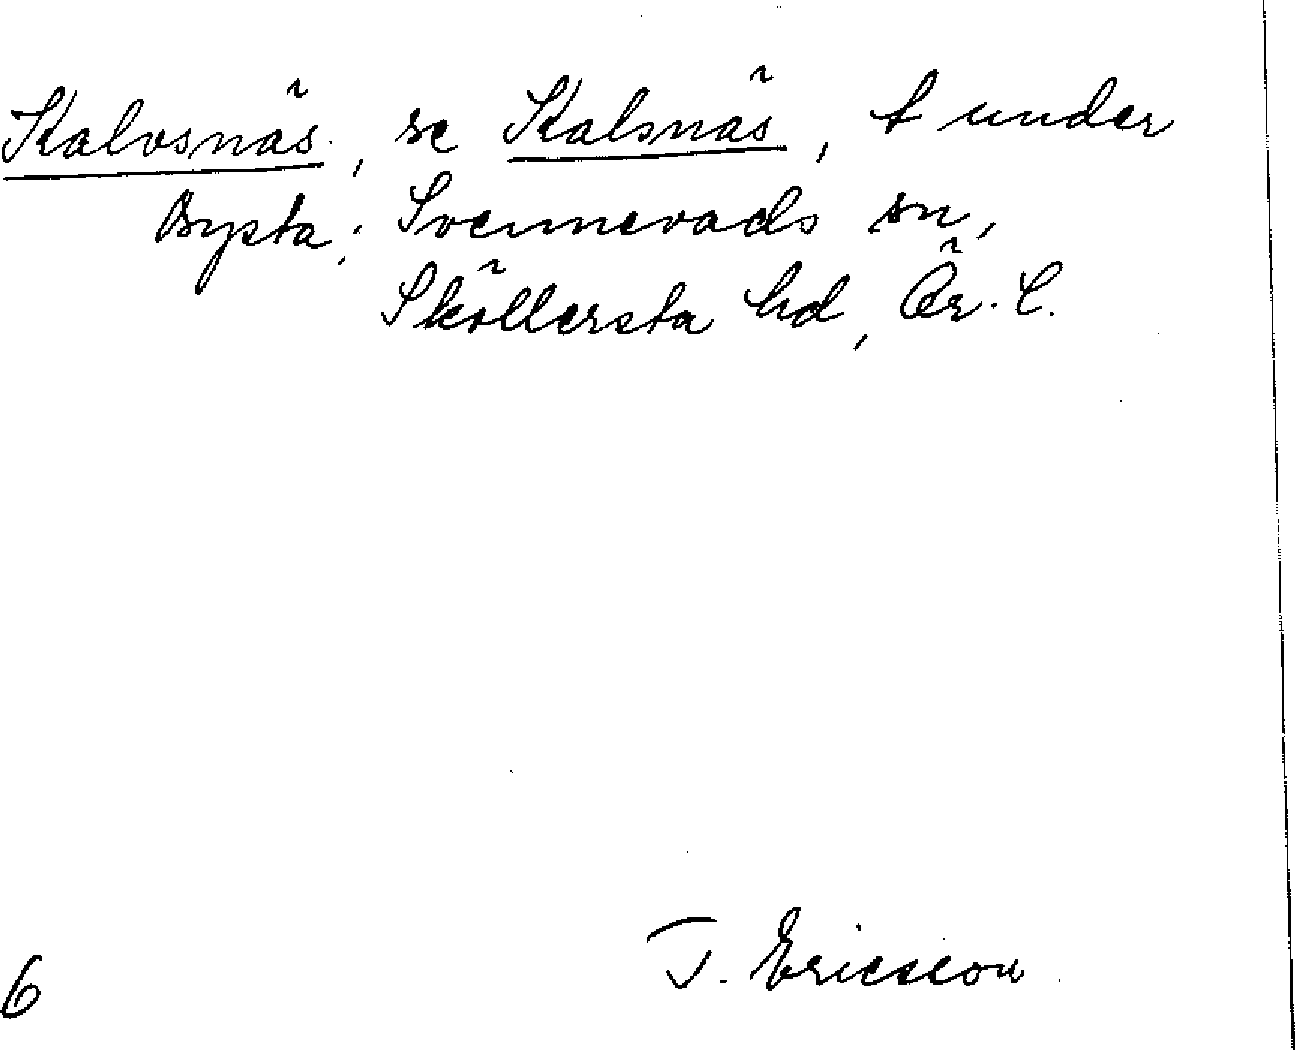 Kalvsnäs, se Kalsnäs, t under
Bysta; Svennevads sn,
Sköllersta hd, Ör. l.
T. Ericsson
6